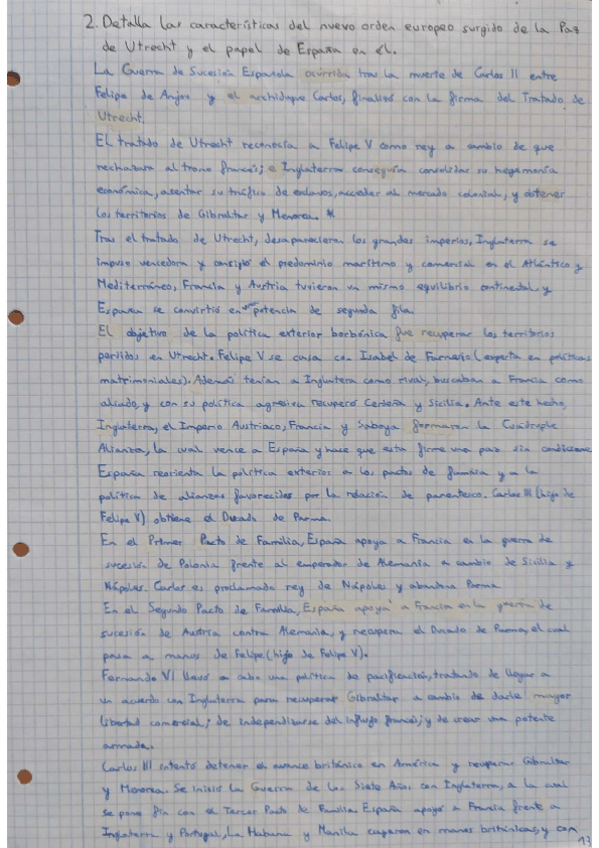 2. Detalla las características del nuevo orden europeo surgido de la Paz
de Utrecht y el papel de España en él.
La Guerra de Sucesión Española ocurrida tras la muerte de Carlos II entre
Felipe de Anjou y el archiduque Carlos, finalizó con la firma del Tratado de
Utrecht.
El tratado de Utrecht reconocía a Felipe V como rey a cambio de que
rechazara al trono francés; e Inglaterra conseguía consolidar su hegemonía
económica, asentar su tráfico de esclavos, acceder al mercado colonial, y obtener
los territorios de Gibraltar y Menorca. *
Tras el tratado de Utrecht, desaparecieron los grandes imperios, Inglaterra se
impuso vencedora y consiguió el predominio marítimo y comercial en el Atlántico y
Mediterráneo, Francia y Austria tuvieron un mismo equilibrio continental, y
España se convirtió en una potencia de segunda fila.
El objetivo de la política exterior borbónica fue recuperar los territorios
perdidos en Utrecht. Felipe V se casa con Isabel de Farnesio (experta en políticas
matrimoniales). Además tenían a Inglaterra como rival, buscaban a Francia como
aliado, y con su política agresiva recuperó Cerdeña y Sicilia. Ante este hecho,
Inglaterra, el Imperio Austriaco, Francia y Saboya formaron la Cuádruple
Alianza, la cual vence a España y hace que esta firme una paz sin condiciones
España reorienta la política exterior a los pactos de familia y a la
política de alianzas favorecidas por la relación de parentesco. Carlos III (hijo de
Felipe V) obtiene el Ducado de Parma.
En el Primer Pacto de Familia, España apoya a Francia en la guerra de
sucesión de Polonia frente al emperador de Alemania a cambio de Sicilia y
Nápoles. Carlos es proclamado rey de Nápoles y abandona Parma
En el Segundo Pacto de Familia, España apoya a Francia en la guerra de
sucesión de Austria contra Alemania, y recupera el Ducado de Parma, el cual
pasa a manos de Felipe (hijo de Felipe V).
Fernando VI llevó a cabo una política de pacificación, tratando de llegar a
un acuerdo con Inglaterra para recuperar Gibraltar a cambio de darle mayor
libertad comercial; de independizarse del influjo francés; y de crear una potente
armada.
Carlos III intentó detener el avance británico en América y recuperar Gibraltar
y Menorca. Se inició la Guerra de los Siete Años con Inglaterra, a la cual
se pone fin con el Tercer Pacto de Familia. España apoyó a Francia frente a
Inglaterra y Portugal, La Habana y Manila cayeron en manos británicas, y con
13